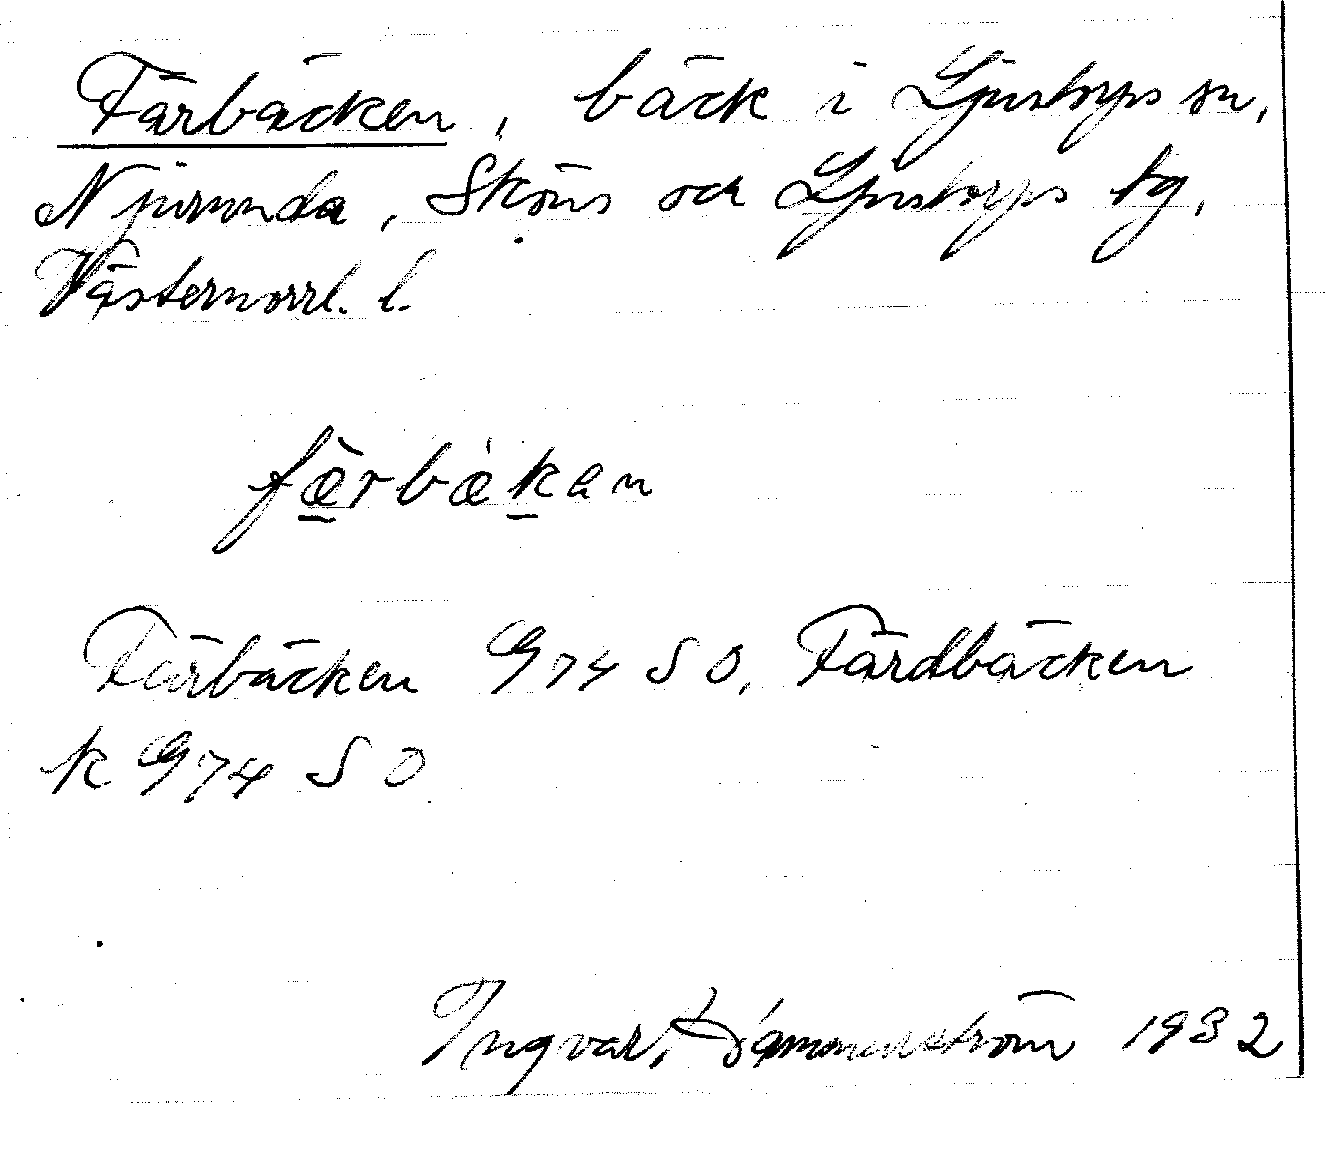 Färbäcken, bäck i Ljustorps sn,
Njurunda, Sköns och Ljustorps tg,
Västernorrl. l.
færbækan
Färbäcken G74 SO, Färdbäcken
k G74 SO
Ingvar 1932